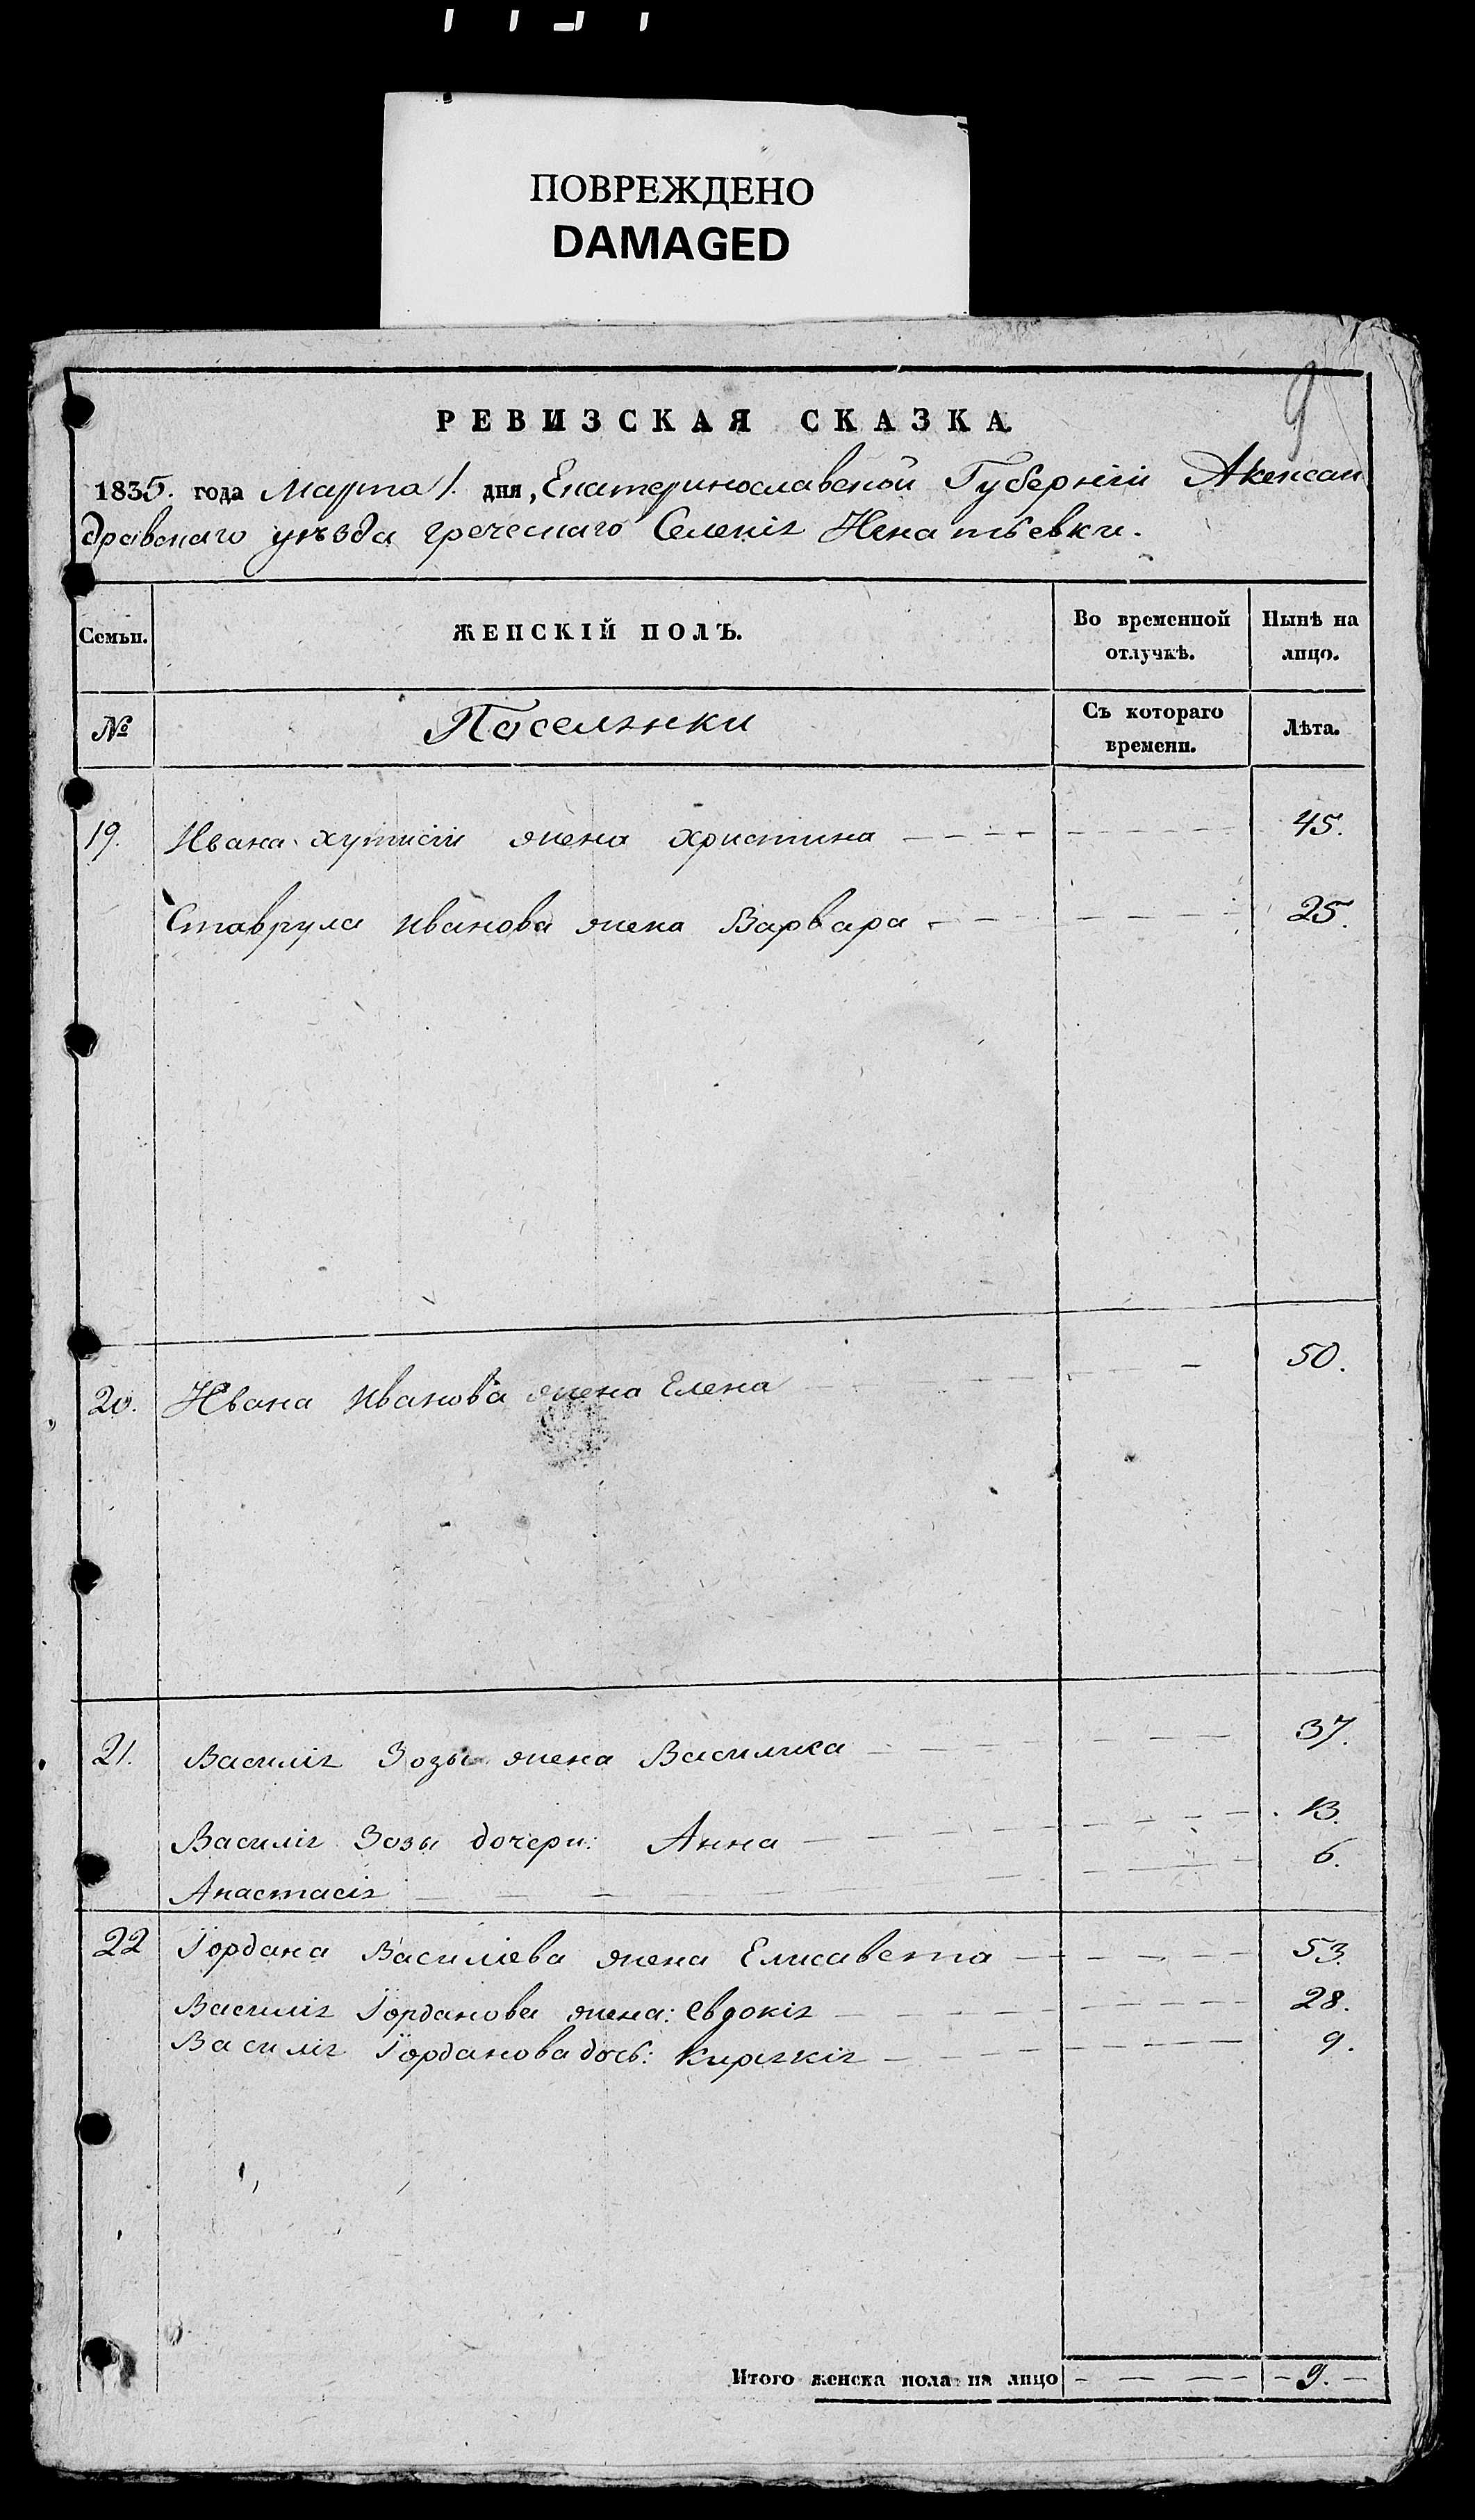 ПОВРЕЖДЕНО
DAMAGED
9
РЕВИЗСКАЯ СКАЗКА
1835. года Марта 1. дня, Екатеринославской Губернiи Алексан
дровскаго уѣзда греческаго Селенiя Игнатьевки.
Семьи. ЖЕНСКIЙ ПОЛЪ. Во временной отлучкѣ. Нынѣ на лицо.
№ Поселянки Съ котораго времени. Лѣта.
19. Ивана жена христина 45.
Ставрула Иванова жена Варвара 25.
20. Ивана Иванова жена Елена 50.
21. Василiя Зозы жена Василика 37.
Василiя Зозы дочери: Анна 13.
Анастасiя 6.
22 Iордана Василiева жена Елисавета 53.
Василiя Iорданова жена: Евдокiя 28.
Василiя Iорданова дочь: Кирякiя 9.
Итого женска пола на лицо 9.